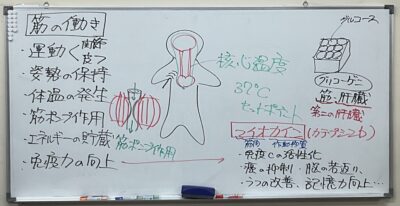 筋の働き
・運動く関節
皮フ
・姿勢の保持
・体温の発生
・筋ポンプ作用
・エネルギーの貯蔵
・免疫力の向上
筋ポンプ作用
核心温度
37℃
セットポイント
グルコース
グリコーゲン
筋・肝臓
第二の肝臓
マイオカイン(カテプシンb)
筋肉 作動物質
・免疫Cの活性化
・癌の抑制・脳の若返り
・うつの改善、記憶力向上…